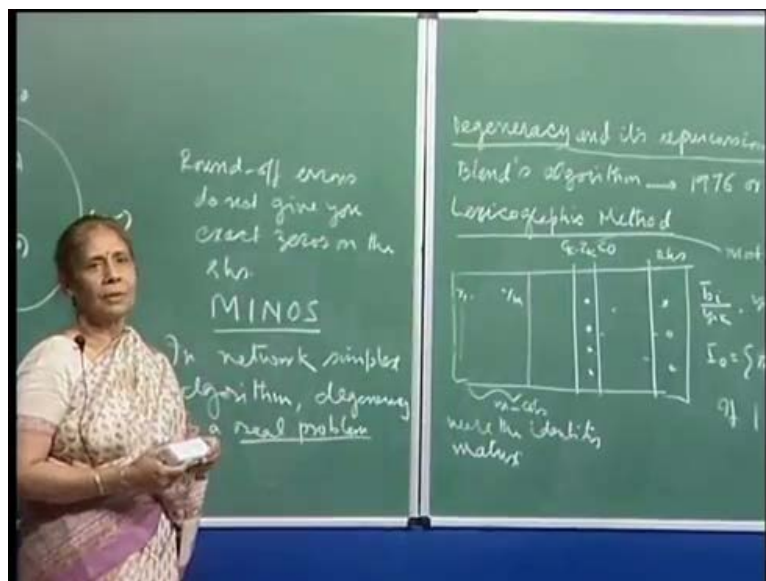 Round-off errors
do not give you
exact zeros on the
rhs.
MINOS
In network simplex
algorithm, degeneracy
is a real problem
Degeneracy and its repercussion
Bland's algorithm → 1976 or
Lexicographic Method
rhs
m-cols
were the identity
matrix
If